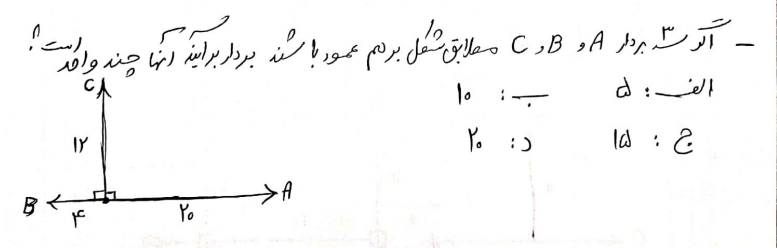 - اگر سه ۳ بردار A و B و C مطابق شکل برهم عمود باشند بردار برآیند آنها چند واحد است؟
الف: ۵ ب: ۱۰
ج: ۱۵ د: ۲۰
C
۱۲
B ۴ ۲۰ A